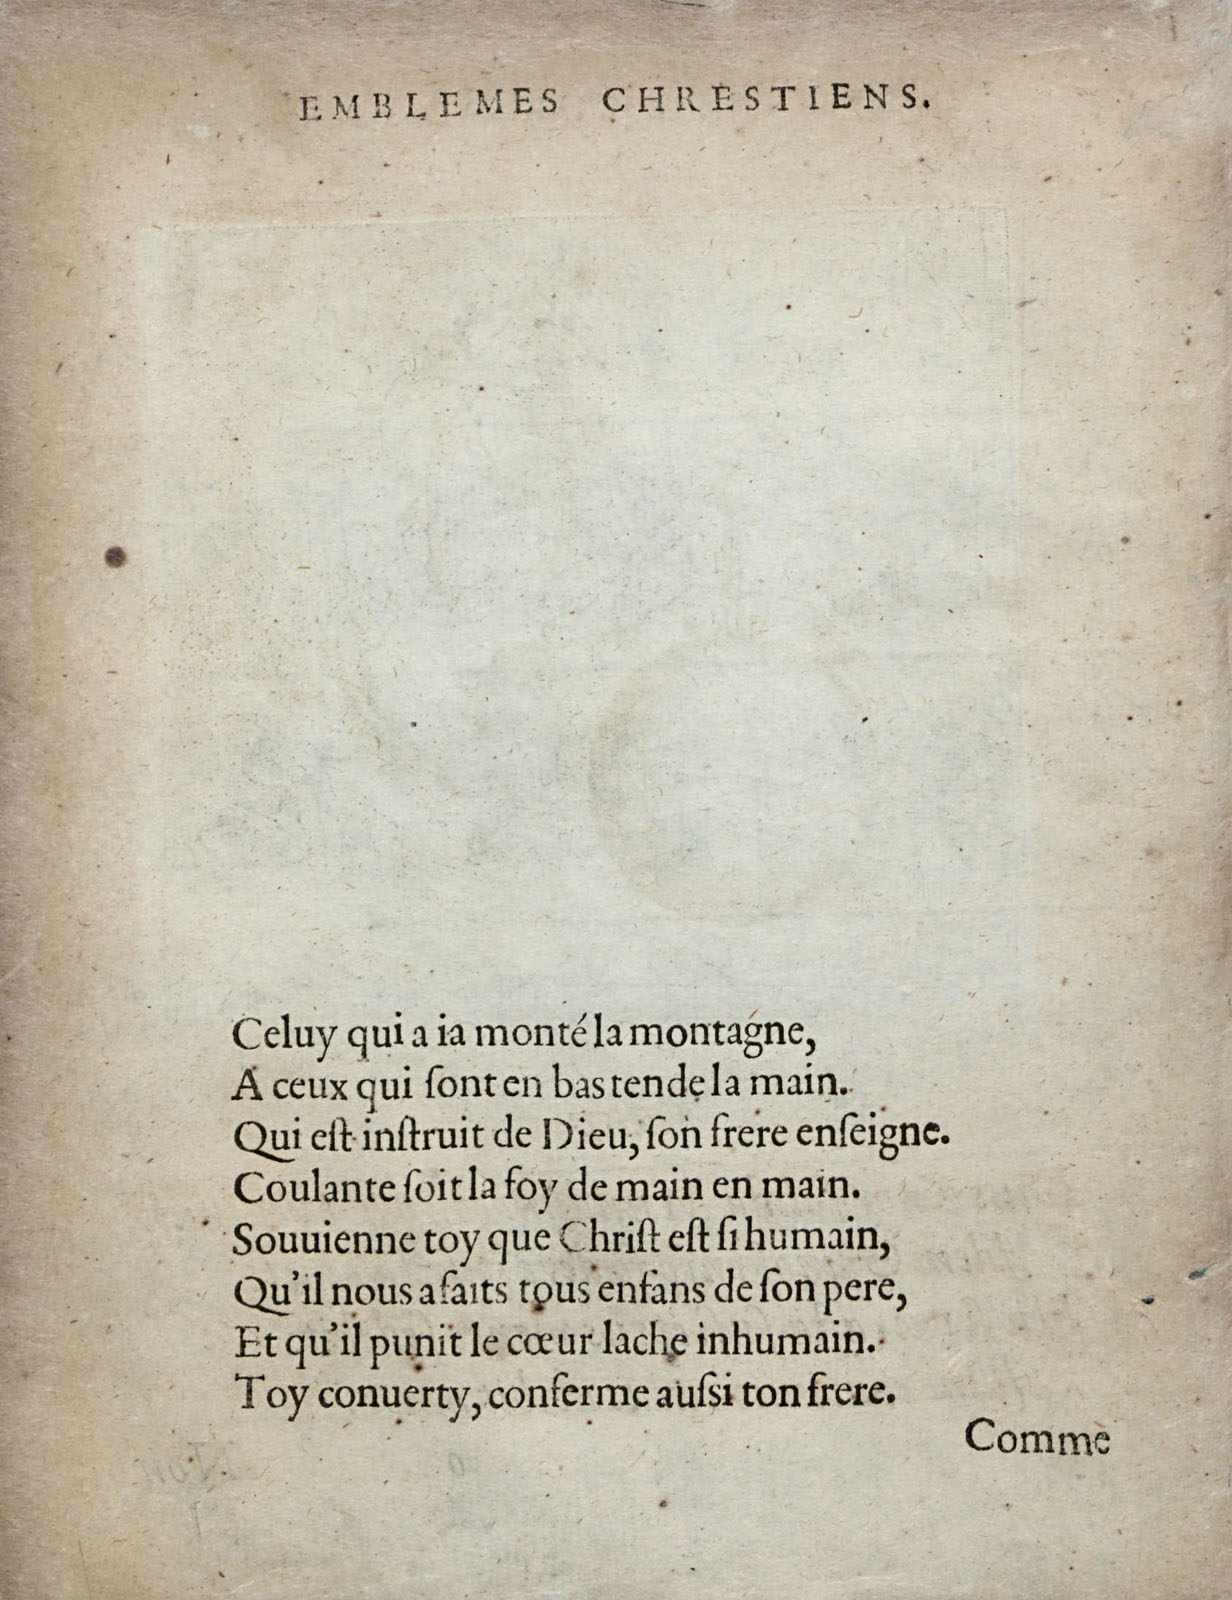 EMBLEMES CHRESTIENS.
Celuy qui a ia monté la montagne,
A ceux qui ſont en bas tende la main.
Qui eſt inſtruit de Dieu, ſon frere enſeigne.
Coulante ſoit la foy de main en main.
Souuienne toy que Chriſt eſt ſi humain,
Qu'il nous a faits tous enfans de ſon pere,
Et qu'il punit le cœur lache inhumain.
Toy conuerty, conferme auſsi ton frere.
Comme